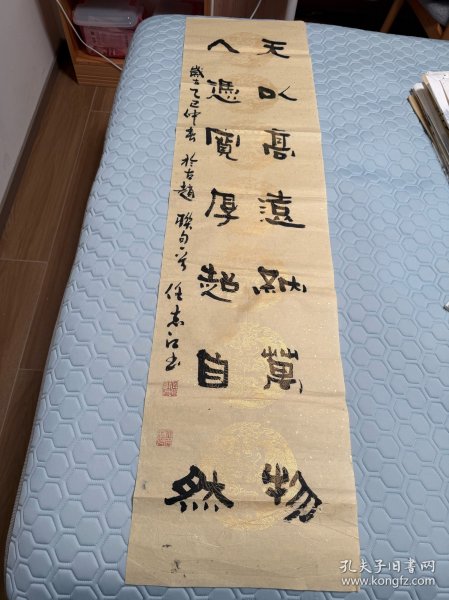 天以高遠納萬物
人憑寬厚超自然
歲在乙巳仲春於古趙聯句一首任志江書
孔夫子旧书网
www.kongfz.com